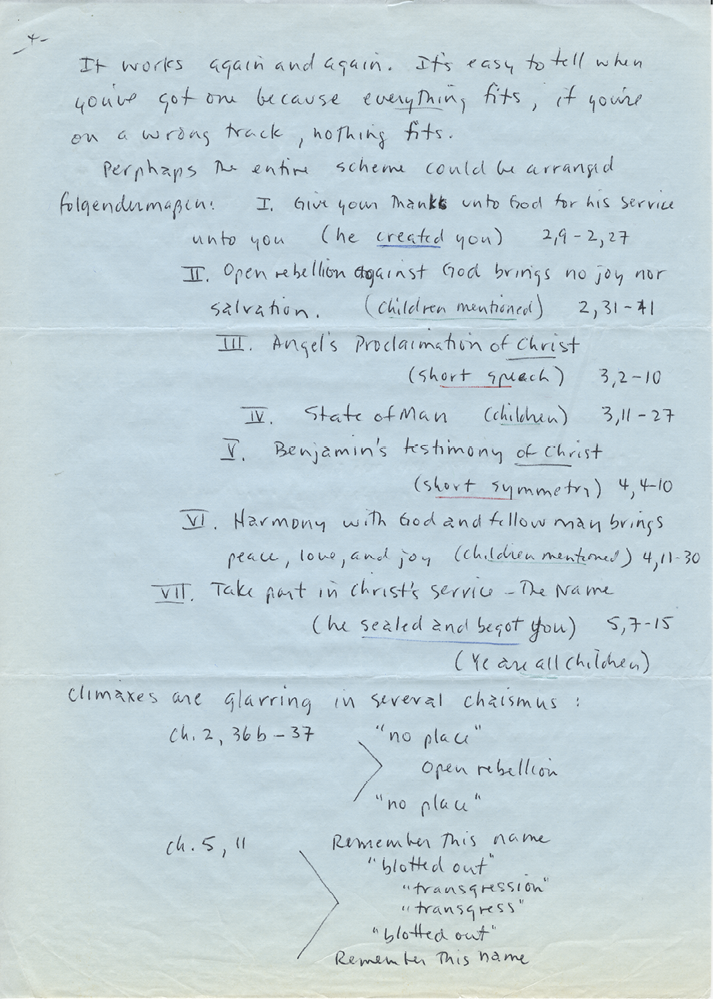 -4-
It works again and again. It's easy to tell when
you've got one because everything fits, if you're
on a wrong track, nothing fits.
Perphaps the entire scheme could be arranged
folgendermaßen: I. Give your thanks unto God for his service
unto you (he created you) 2,9-2,27
II. Open rebellion against God brings no joy nor
salvation. (children mentioned) 2,31-41
III. Angel's Proclaimation of Christ
(short speach) 3,2-10
IV. State of Man (children) 3,11-27
V. Benjamin's testimony of Christ
(short symmetry) 4,4-10
VI. Harmony with God and fellow man brings
peace, love, and joy (children mentioned) 4,11-30
VII. Take part in Christ's service - The Name
(he sealed and begot you) 5,7-15
(Ye are all children)
Climaxes are glarring in several chaismus:
Ch. 2, 36b-37 "no place"
Open rebellion
"no place"
Ch. 5, 11 Remember this name
"blotted out"
"transgression"
"transgress"
"blotted out"
Remember this name